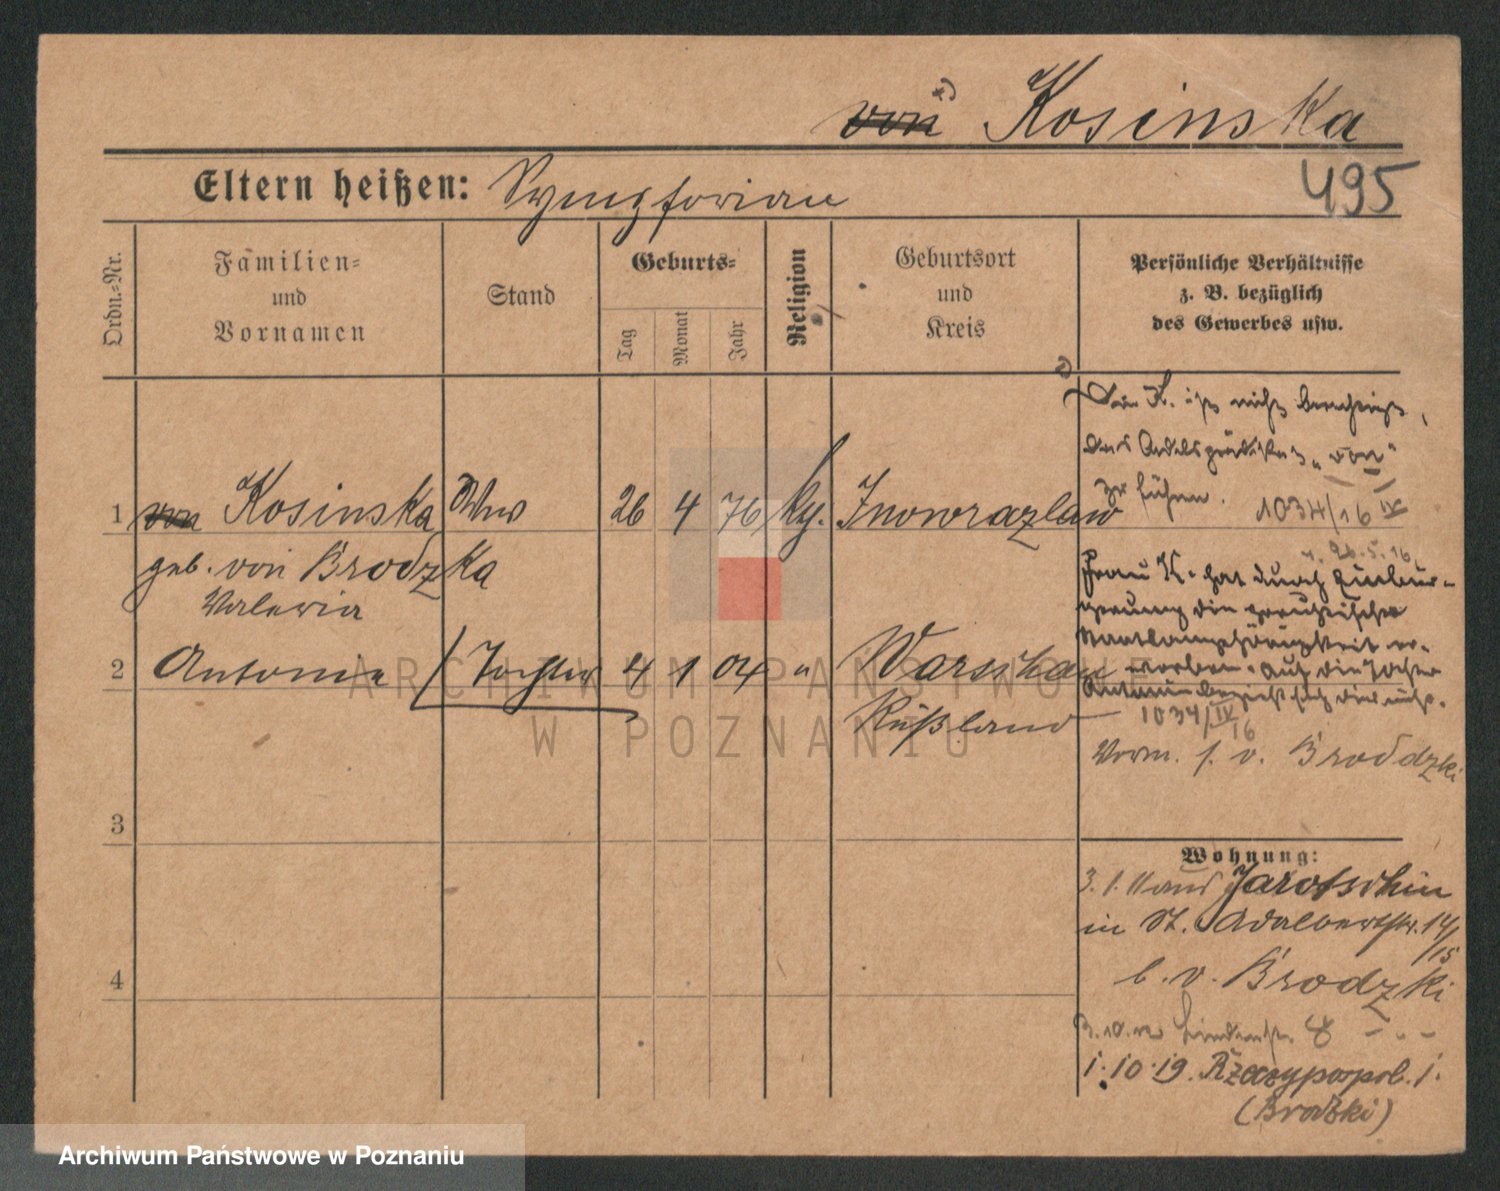 von *) Kosinska
Eltern heißen: Symphorian
495
Ordn.-Nr.
Familien-
und
Vornamen
Stand
Geburts-
Tag
Monat
Jahr
Religion
Geburtsort
und
Kreis
Persönliche Verhältnisse
z. B. bezüglich
des Gewerbes usw.
1 von Kosinska Wwe 26 4 76 kg. Inowrazlaw
geb. von Brodzka
Valeria
2 Antonie Tochter 4 1 04 " Warschau
Rußland
3
4
Die K. ist nicht berechtigt,
das Adelsprädikat "von"
zu führen. 1034/16 IV
v. 26.5.16
Frau K. hat durch Einbür-
gerung die preußische
Staatsangehörigkeit er-
worben. Auf die Tochter
Antonie bezieht sich dies nicht.
1034/IV 16
Vorm. s. v. Brodzki
Wohnung:
3. 1. 11 aus Jarotschin
in St. Adalbertstr. 14/15
b. v. Brodzki
8 - " -
1.10.19. Rzeczypospol. 1.
(Brodzki)
ARCHIWUM PAŃSTWOWE
W POZNANIU
Archiwum Państwowe w Poznaniu